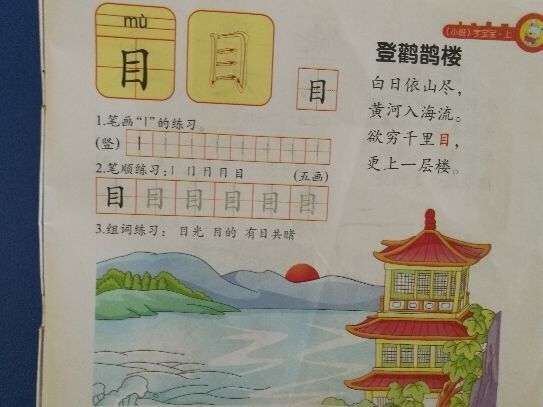 mù
目
目
(小班)李宝宝·上
登鹳鹊楼
白日依山尽,
黄河入海流。
欲穷千里目,
更上一层楼。
1.笔画“丨”的练习。
(竖)丨
2.笔顺练习:丨 冂 日 月 目 (五画)
目 目 目 目 目 目
3.组词练习: 目光 目的 有目共睹